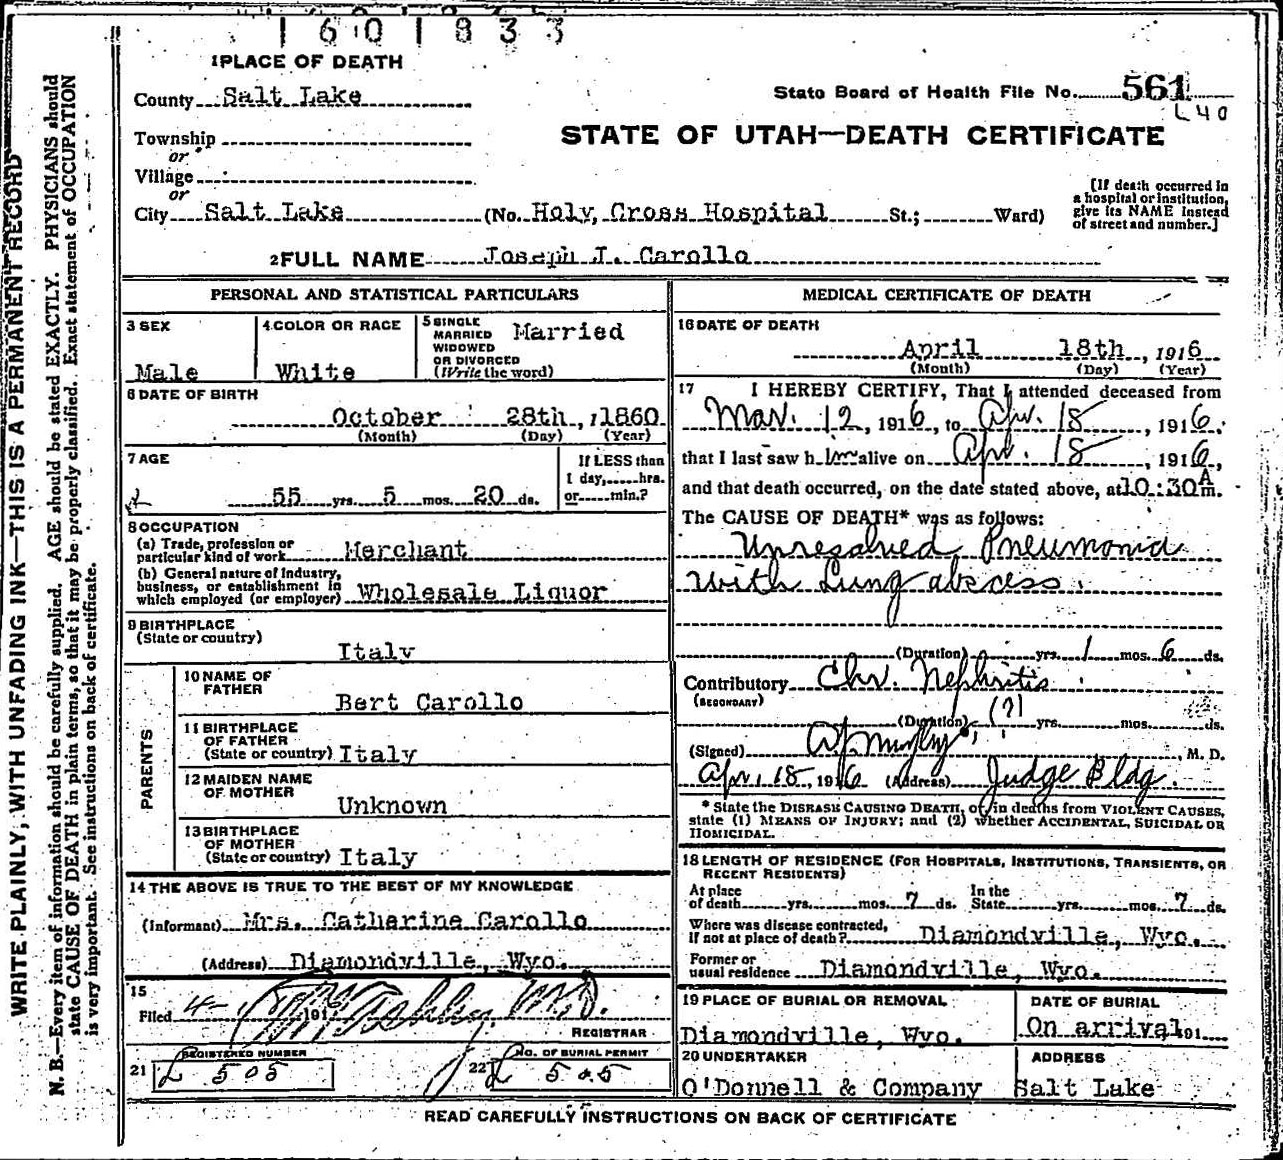 1601833
1 PLACE OF DEATH
County Salt Lake
State Board of Health File No. 561
L 40
Township
or
Village
or
STATE OF UTAH—DEATH CERTIFICATE
City Salt Lake (No. Holy, Cross Hospital St.; Ward)
[If death occurred in
a hospital or institution,
give its NAME instead
of street and number.]
2 FULL NAME Joseph J. Carollo
PERSONAL AND STATISTICAL PARTICULARS
3 SEX
Male
4 COLOR OR RACE
White
5 SINGLE
MARRIED
WIDOWED
OR DIVORCED
(Write the word)
Married
6 DATE OF BIRTH
October 28th, 1860
(Month) (Day) (Year)
7 AGE
55 yrs. 5 mos. 20 ds.
If LESS than
1 day, hrs.
or min.?
8 OCCUPATION
(a) Trade, profession or
particular kind of work Merchant
(b) General nature of Industry,
business, or establishment in
which employed (or employer) Wholesale Liquor
9 BIRTHPLACE
(State or country)
Italy
PARENTS
10 NAME OF
FATHER
Bert Carollo
11 BIRTHPLACE
OF FATHER
(State or country) Italy
12 MAIDEN NAME
OF MOTHER
Unknown
13 BIRTHPLACE
OF MOTHER
(State or country) Italy
14 THE ABOVE IS TRUE TO THE BEST OF MY KNOWLEDGE
(Informant) Mrs. Catharine Carollo
(Address) Diamondville, Wyo.
15
Filed 191 M.D.
REGISTRAR
21 REGISTERED NUMBER
L 505
22 No. OF BURIAL PERMIT
L 505
MEDICAL CERTIFICATE OF DEATH
16 DATE OF DEATH
April 18th, 1916
(Month) (Day) (Year)
17 I HEREBY CERTIFY, That I attended deceased from
Mar. 12, 1916, to Apr. 18, 1916.
that I last saw him alive on Apr. 18, 1916,
and that death occurred, on the date stated above, at 10:30 A m.
The CAUSE OF DEATH* was as follows:
Unresolved Pneumonia
with Lung abscess.
(Duration) yrs. 1 mos. 6 ds.
Contributory Chr. Nephritis
(SECONDARY)
(Duration) (?) yrs. mos. ds.
(Signed) M. D.
Apr. 18, 1916 (Address) Judge Bldg.
* State the DISEASE CAUSING DEATH, or, in deaths from VIOLENT CAUSES,
state (1) MEANS OF INJURY; and (2) whether ACCIDENTAL, SUICIDAL OR
HOMICIDAL.
18 LENGTH OF RESIDENCE (FOR HOSPITALS, INSTITUTIONS, TRANSIENTS, OR
RECENT RESIDENTS)
At place
of death yrs. mos. 7 ds.
In the
State yrs. mos. 7 ds.
Where was disease contracted,
If not at place of death? Diamondville, Wyo.
Former or
usual residence Diamondville, Wyo.
19 PLACE OF BURIAL OR REMOVAL
Diamondville, Wyo.
DATE OF BURIAL
On arrival 191
20 UNDERTAKER
O'Donnell & Company
ADDRESS
Salt Lake
READ CAREFULLY INSTRUCTIONS ON BACK OF CERTIFICATE
WRITE PLAINLY, WITH UNFADING INK—THIS IS A PERMANENT RECORD
N. B.—Every item of information should be carefully supplied. AGE should be stated EXACTLY. PHYSICIANS should
state CAUSE OF DEATH in plain terms, so that it may be properly classified. Exact statement of OCCUPATION
is very important. See instructions on back of certificate.